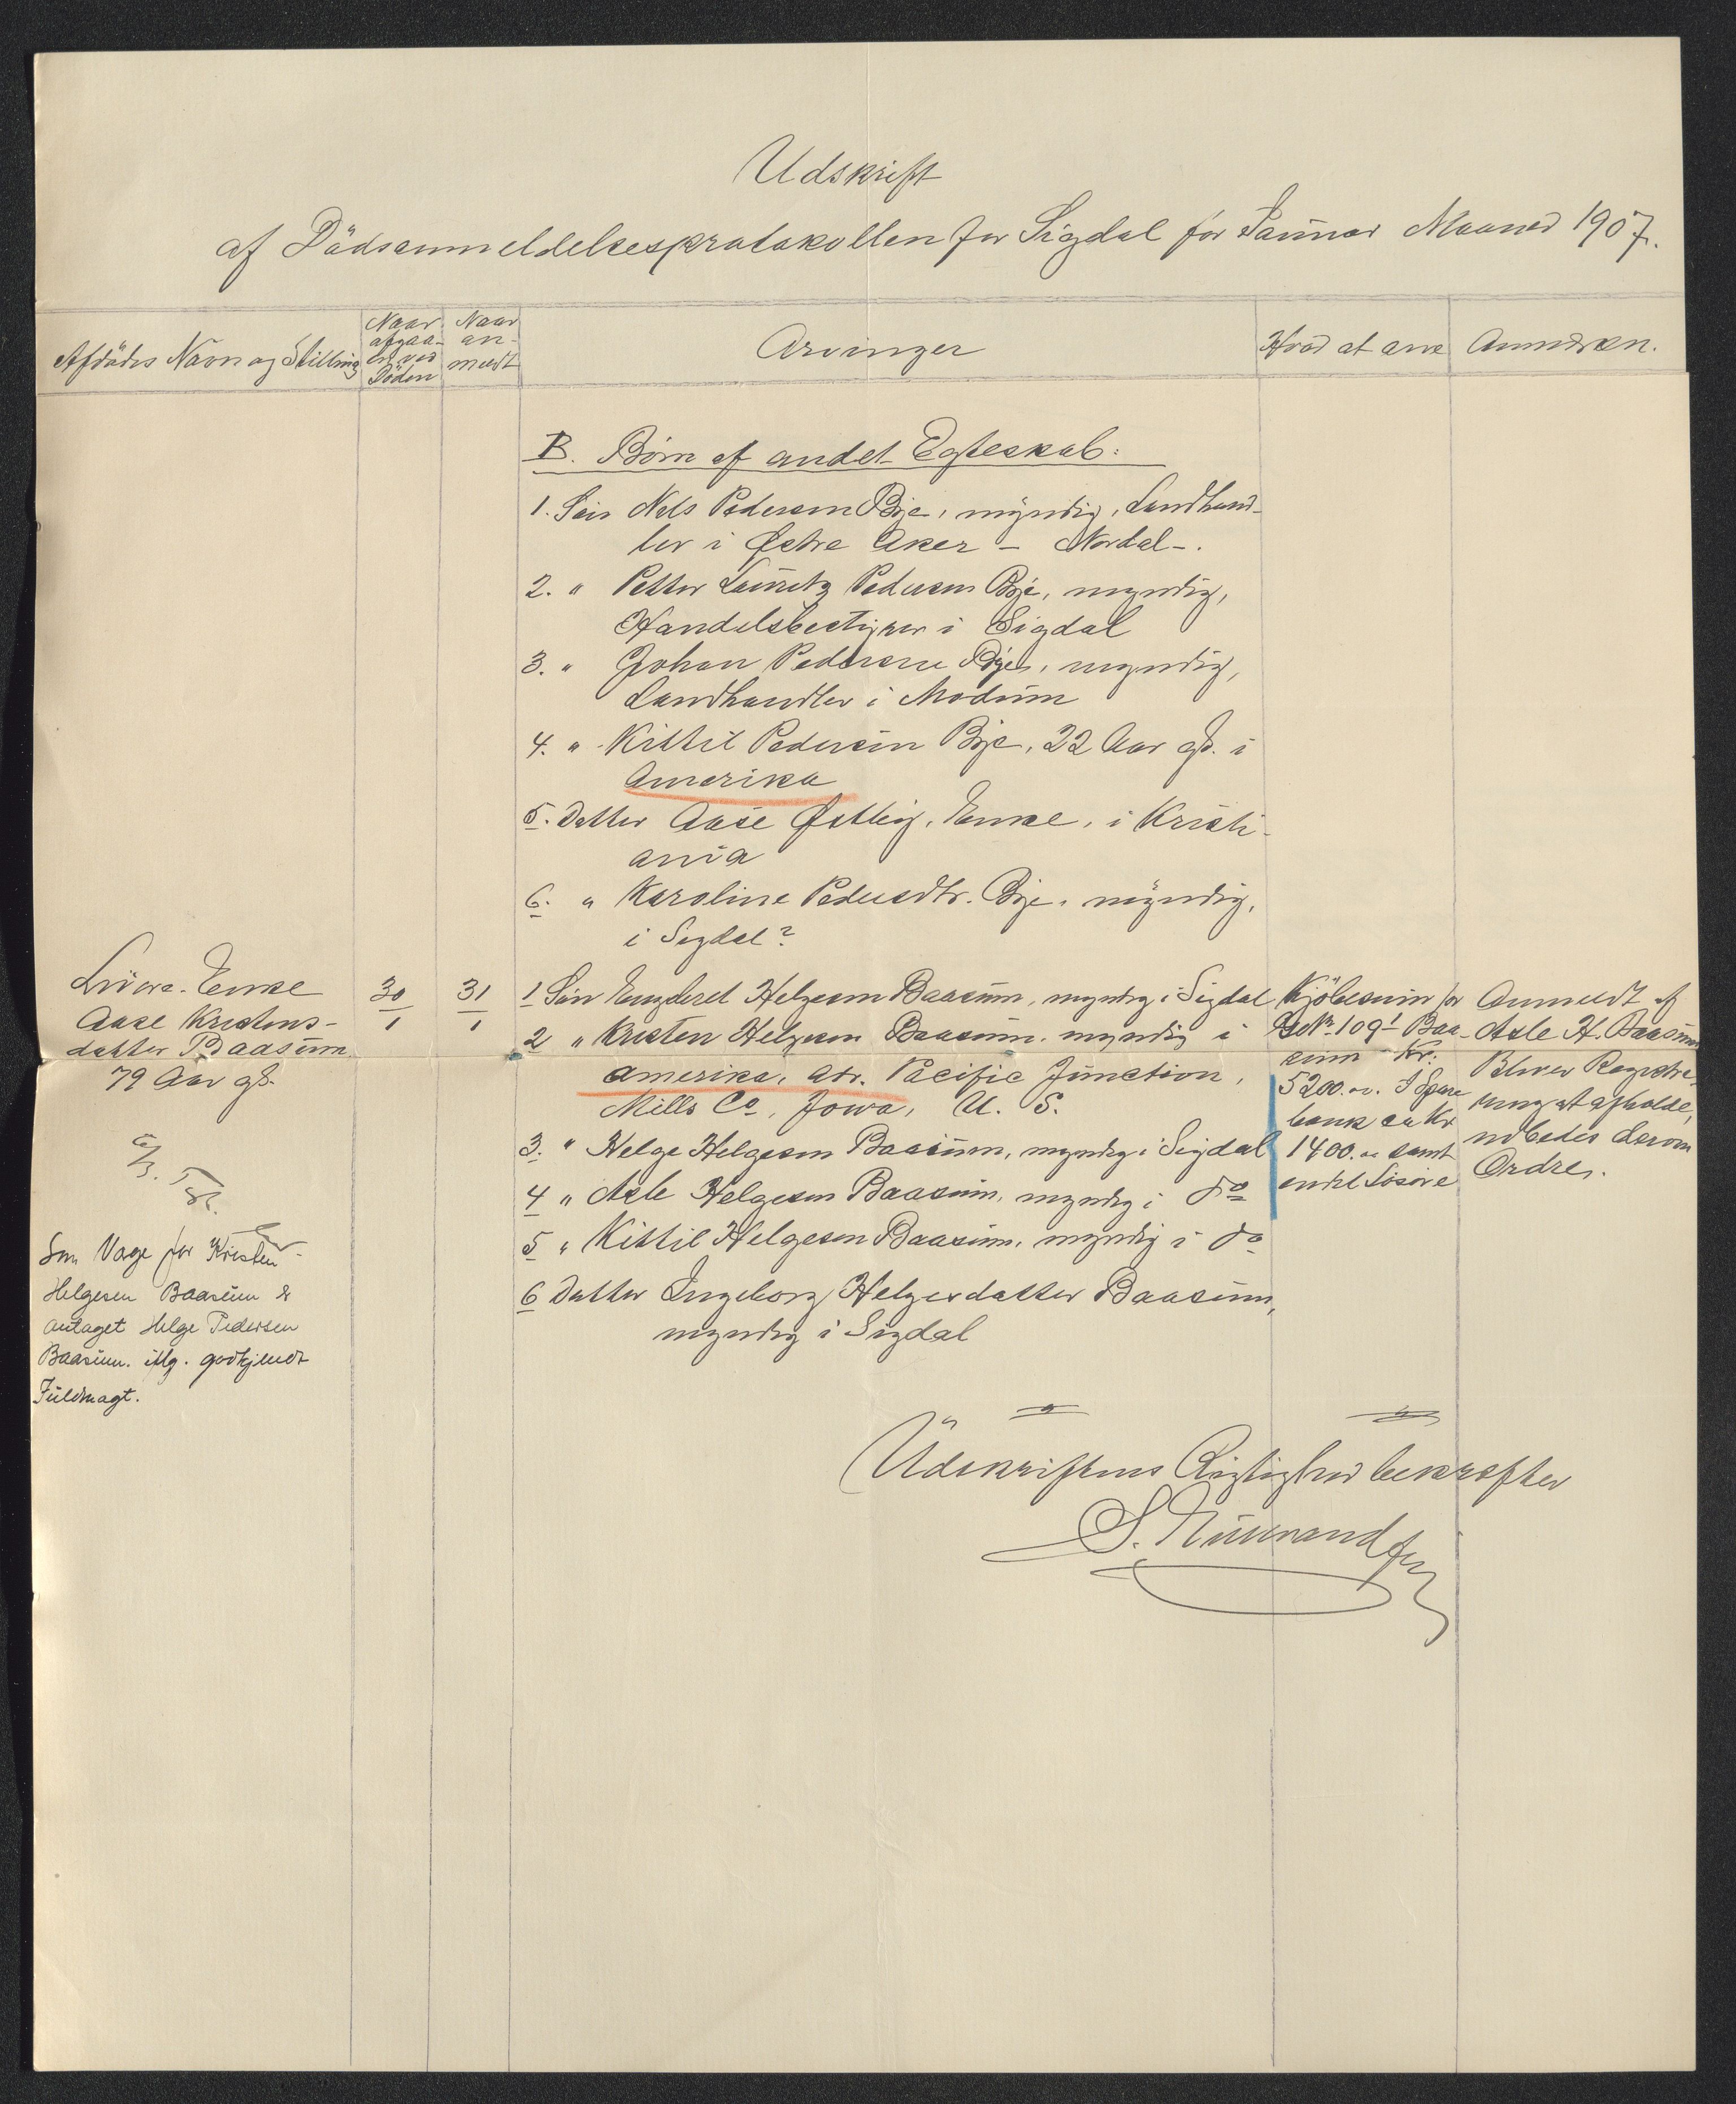 Udskrift
af Dödsanmeldelsesprotokollen for Sigdal for Januar Maaned 1907.
Afdödes Navn og Stilling
Naar
afgaa-
en ved
Döden
Naar
an-
meldt
Arvinger
Hvad at arve
Anmærkn.
B. Börn af andet Egteskab:
1. Sön Nels Pedersen Bye, myndig, Landhand-
ler i Østre Aker – Nordal –.
2. " Petter Lauritz Pedersen Bye, myndig,
Handelsbestyrer i Sigdal
3. " Johan Pedersen Bye, myndig,
Landhandler i Modum
4. " Kittil Pedersen Bye, 22 Aar gl. i
Amerika
5. Datter Aase Østby, Enke, i Kristi-
ania
6. " Karoline Pedersdtr. Bye, myndig,
i Sigdal?
Enke
Aase Kristens-
datter Baasum
79 Aar gl.
30/1
31/1
1 Sön Engebret Helgesen Baasum, myndig i Sigdal
2 " Kristen Helgesen Baasum, myndig i
Amerika, adr. Pacific Junction,
Mills Co, Jowa, U. S.
3. " Helge Helgesen Baasum, myndig i Sigdal
4 " Asle Helgesen Baasum, myndig i do
5 " Kittil Helgesen Baasum, myndig i do
6 Datter Ingeborg Helgesdatter Baasum,
myndig i Sigdal
Kjöbesum for
109 1 Baa-
sum Kr.
5200.00. I Spare
bank ca Kr
1400.00 samt
endel Lösöre
Anmeldt af
Asle H. Baasum
Bliver Registre-
ring at afholde,
udbedes derom
Ordre.
Som Værge for Kristen
Helgesen Baasum er
antaget Helge Pedersen
Baasum. iflg. godkjendt
Fuldmagt.
Udskriftens Rigtighed bekræfter